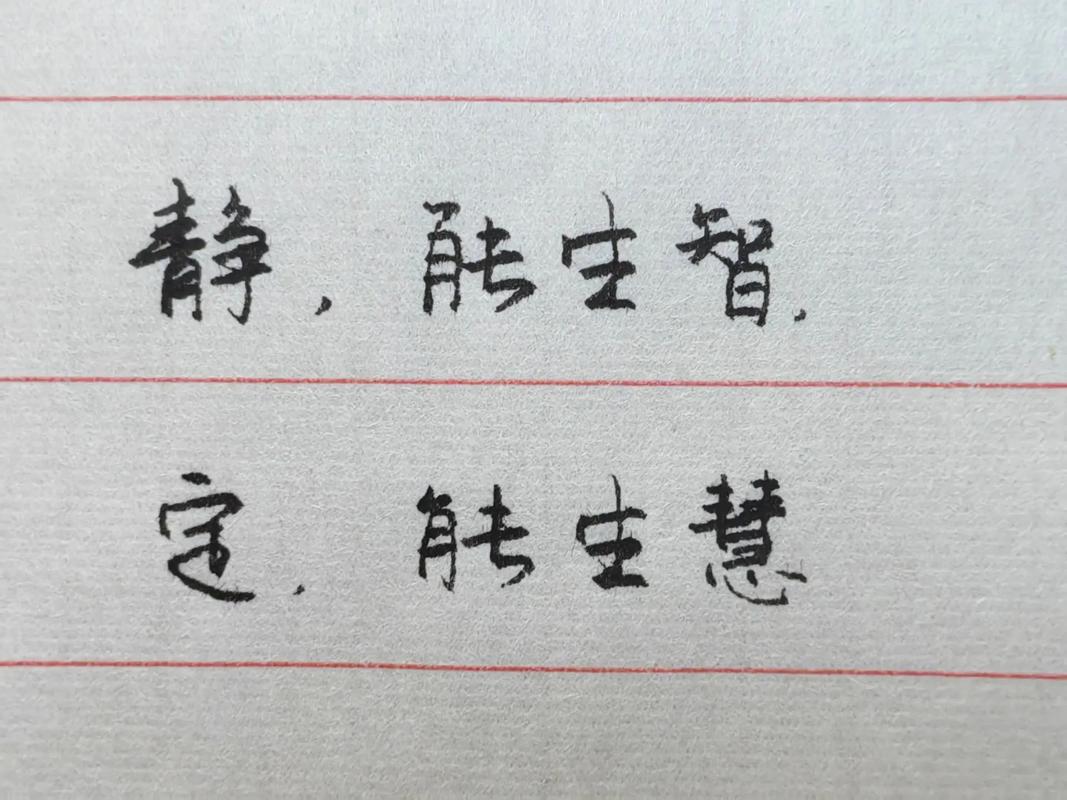 静，能生智.
定.能生慧